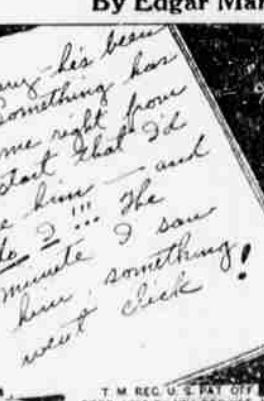 By Edgar Mar
ny - he's been
omething has
me right from
tart that I'd
e him — and
do I!!! The
minute I saw
him, something
went click!
T. M. REG. U. S. PAT. OFF.